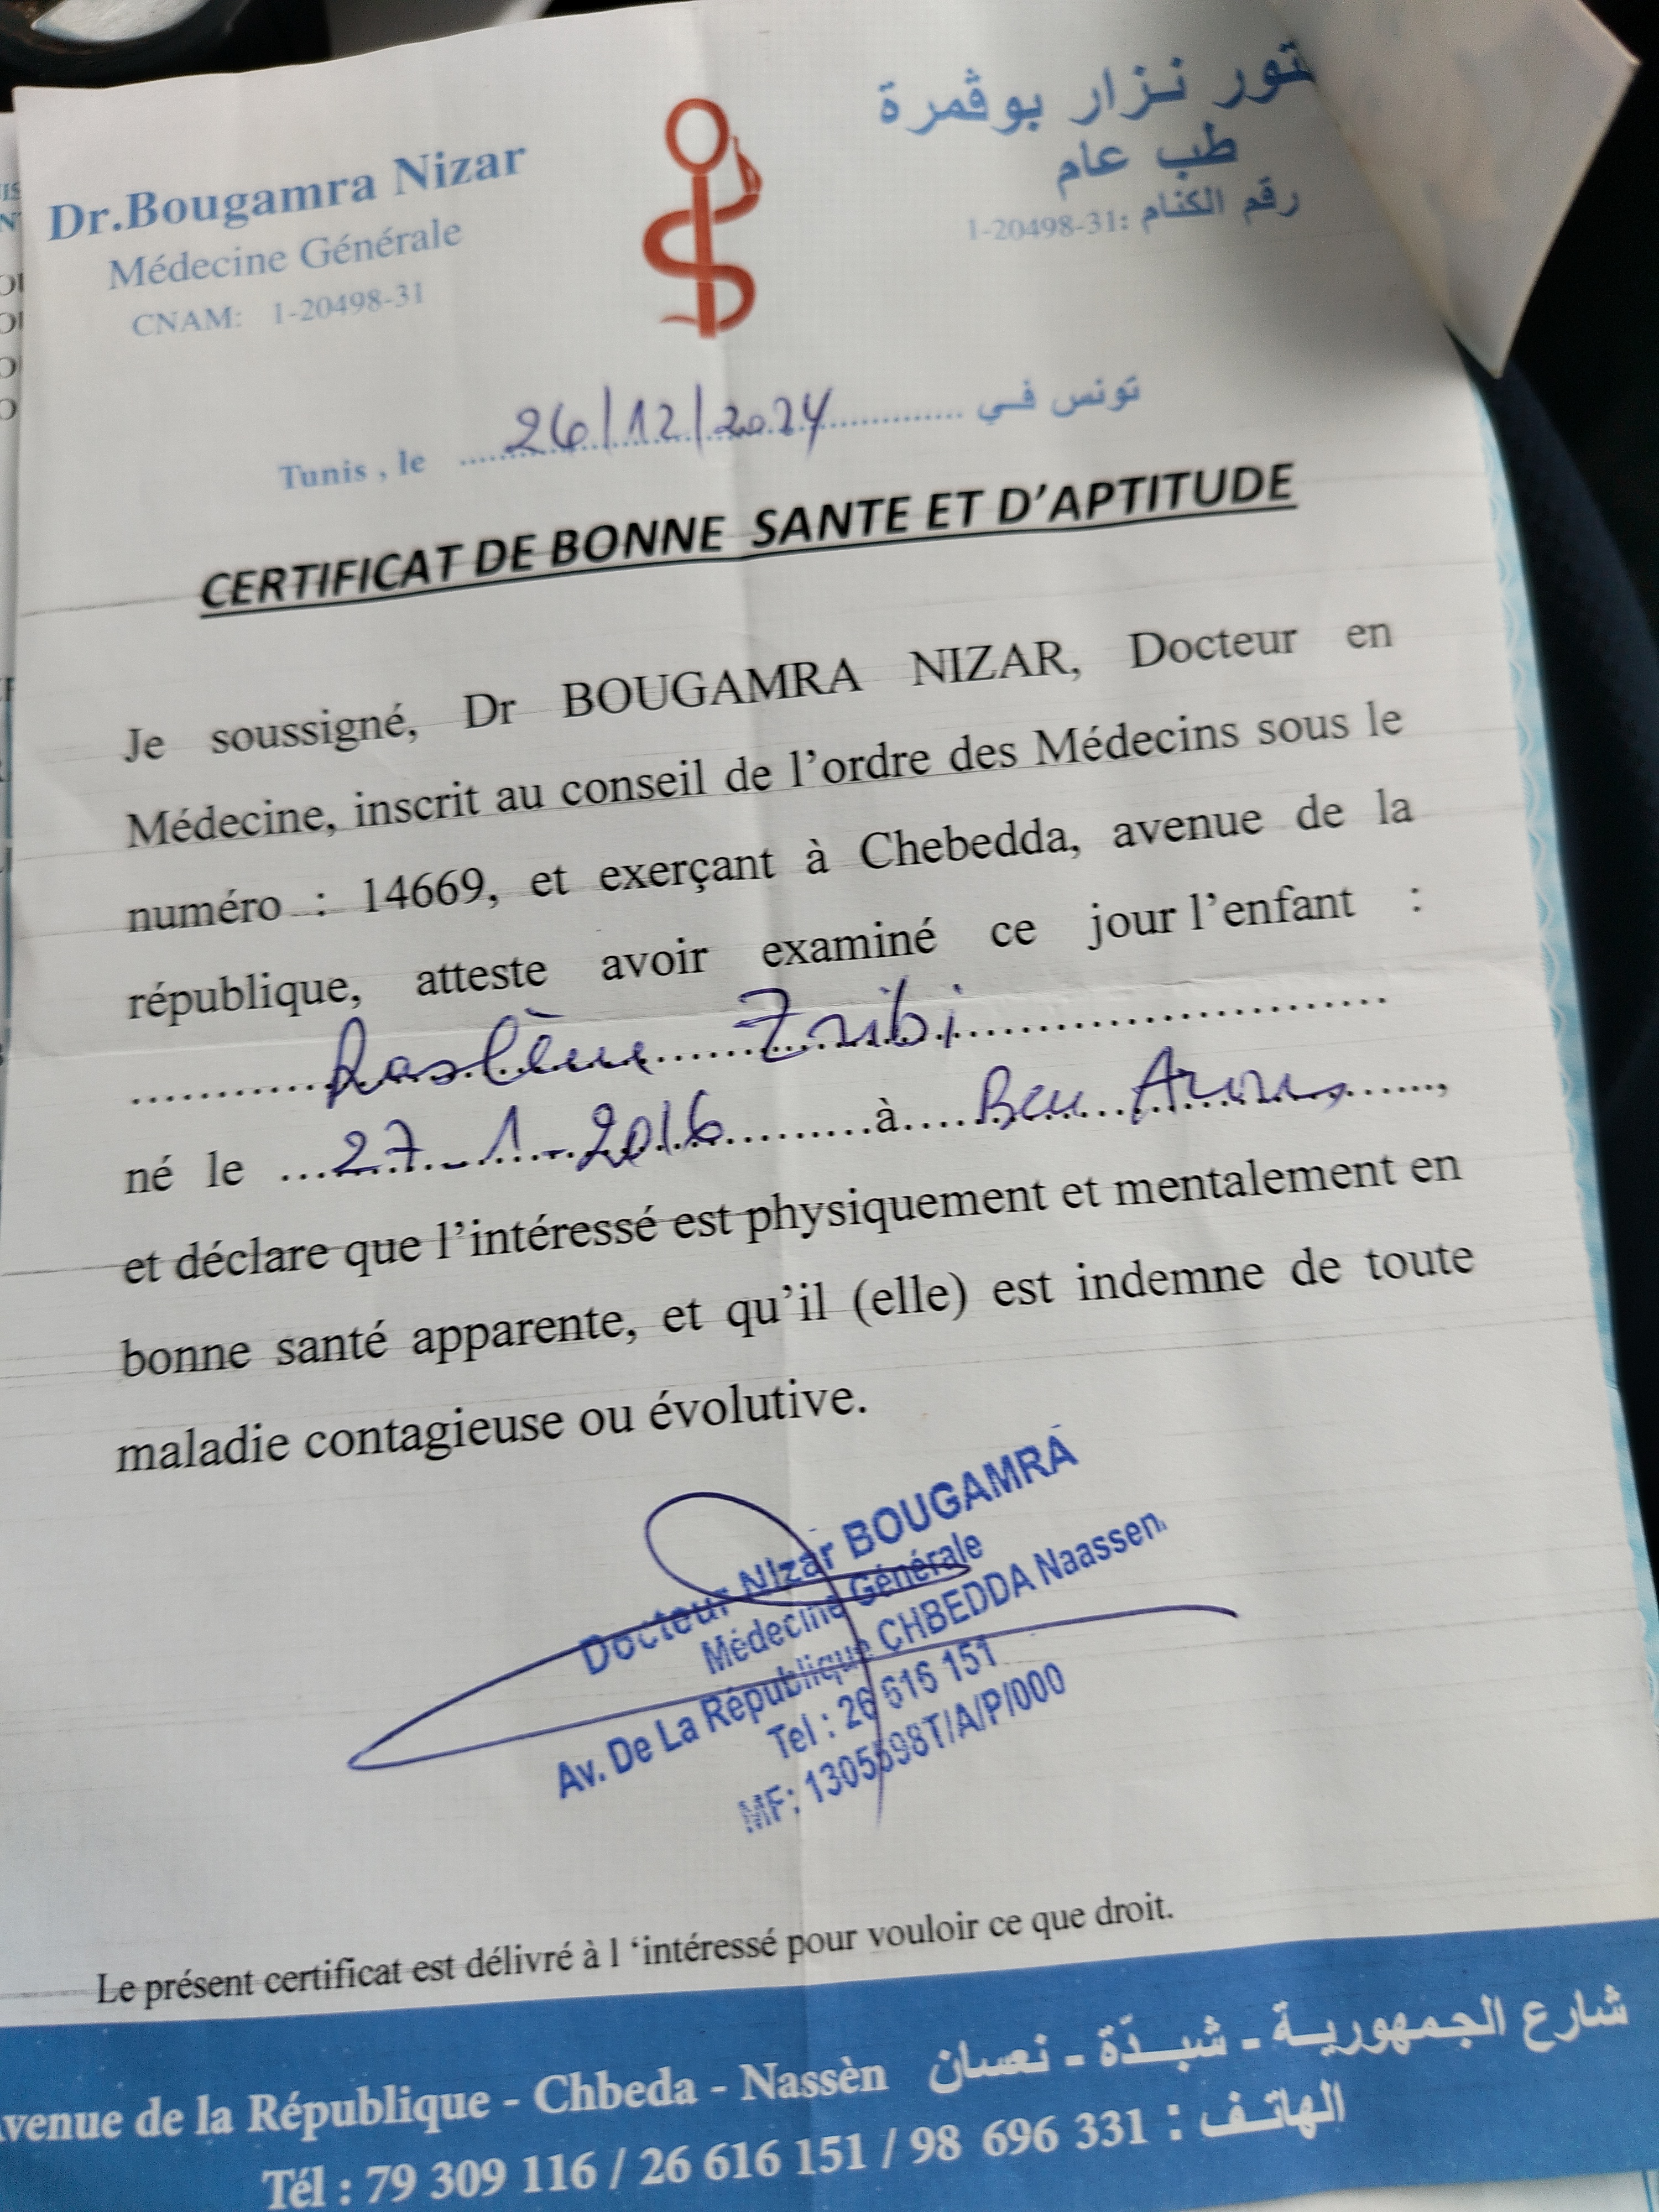 Dr.Bougamra Nizar
Médecine Générale
CNAM: 1-20498-31
تور نزار بوڨمرة
طب عام
رقم الكنام :1-20498-31
Tunis , le 26/12/2024 تونس في
CERTIFICAT DE BONNE SANTE ET D’APTITUDE
Je soussigné, Dr BOUGAMRA NIZAR, Docteur en
Médecine, inscrit au conseil de l’ordre des Médecins sous le
numéro : 14669, et exerçant à Chebedda, avenue de la
république, atteste avoir examiné ce jour l’enfant :
Raslène Zribi
né le 27-1-2016 à Ben Arous,
et déclare que l’intéressé est physiquement et mentalement en
bonne santé apparente, et qu’il (elle) est indemne de toute
maladie contagieuse ou évolutive.
Docteur Nizar BOUGAMRA
Médecine Générale
Av. De La République CHBEDDA Naassen
Tel : 26 616 151
MF: 1305598T/A/P/000
Le présent certificat est délivré à l ‘intéressé pour vouloir ce que droit.
venue de la République - Chbeda - Nassèn شارع الجمهورية - شبدّة - نعسان
Tél : 79 309 116 / 26 616 151 / 98 696 331 : الهاتف